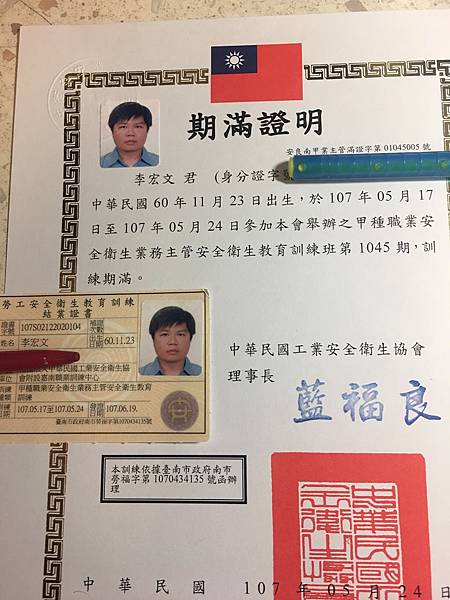 期滿證明
安良南甲業主管滿證字第 01045005 號
李宏文 君 (身分證字號
中華民國 60 年 11 月 23 日出生,於 107 年 05 月 17
日至 107 年 05 月 24 日參加本會舉辦之甲種職業安
全衛生業務主管安全衛生教育訓練班第 1045 期,訓
練期滿。
中華民國工業安全衛生協會
理事長
藍福良
勞工安全衛生教育訓練
結業證書
證書字號 107S02122020104 補證次數
姓名 李宏文 出生日期 60.11.23
中華民國工業安全衛生協
會附設嘉南職業訓練中心
甲種職業安全衛生業務主管安全衛生教育
訓練
107.05.17至107.05.24 發證日期 107.06.19.
臺南市政府南市勞福字第1070434135號
本訓練依據臺南市政府南市
勞福字第 1070434135 號函辦
理
中華民國 107 年 05 月 24 日